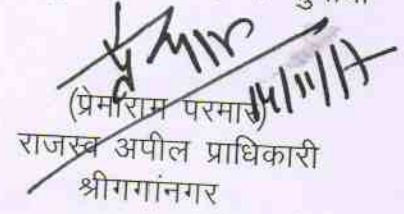 14/11/17
(प्रेमाराम परमार)
राजस्व अपील प्राधिकारी
श्रीगगांनगर